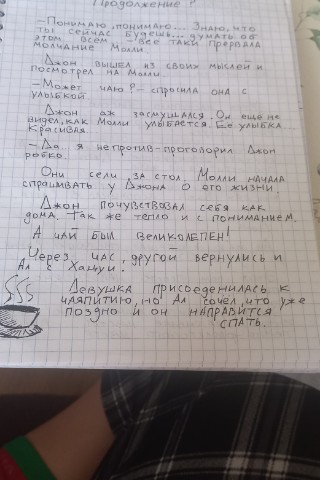 Продолжение!
-Понимаю, понимаю... Знаю, что
ты сейчас будешь... думать об
этом. Всём - Всё таки прервала
молчание Молли
Джон вышел из своих мыслей и
посмотрел на Молли.
-Может чаю? - спросила она с
улыбкой
Джон аж засмущался. Он еще не
видел, как Молли улыбается. Её улыбка
красивая.
-Да я не против-проговорил Джон
робко.
Они сели за стол. Молли начала
спрашивать у Джона о его жизни.
Джон почувствовал себя как
дома. Так же тепло и с пониманием.
А чай был великолепен!
Через час, другой вернулись и
Ал с Хацуи.
Девушка присоеденилась к
чаяпитию, но Ал сочёл, что уже
поздно и он направится
спать.